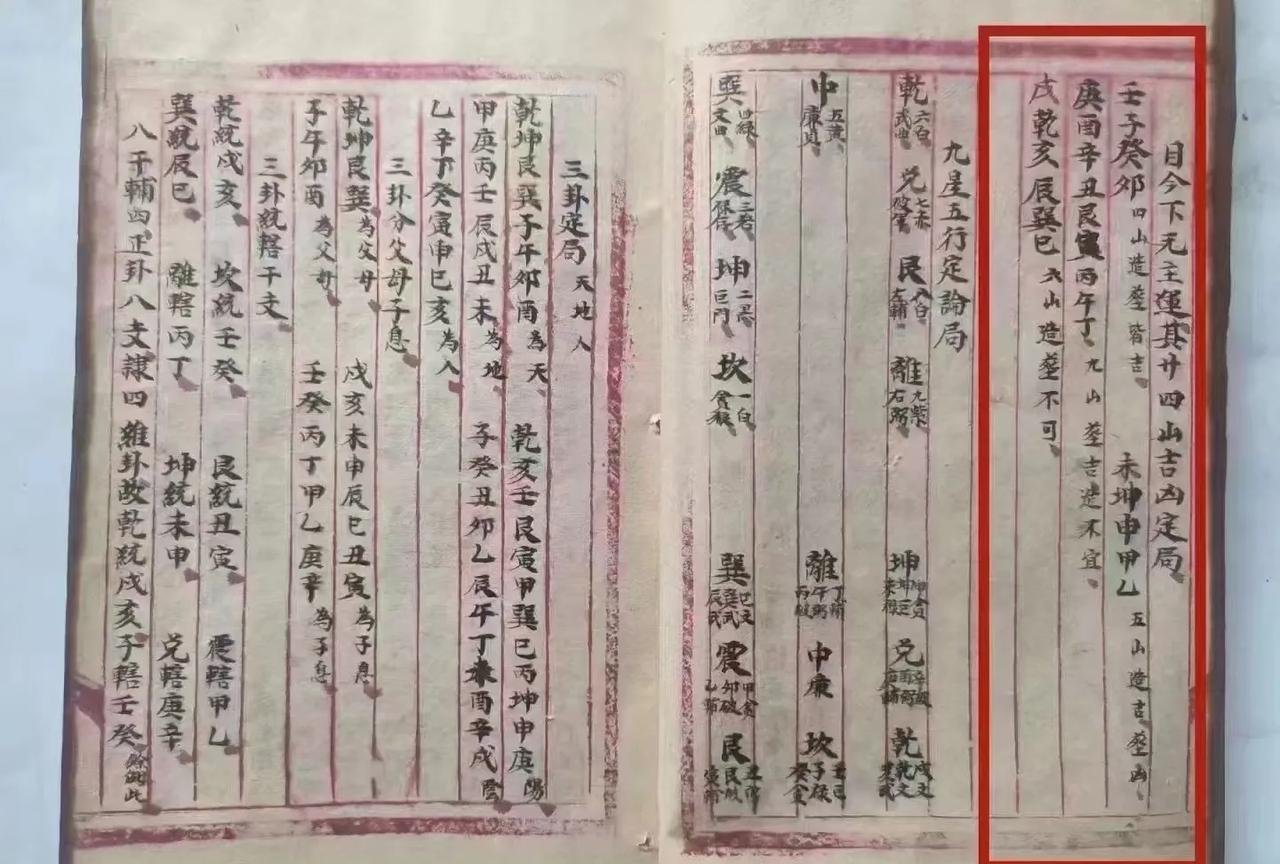 日今下元主運其廿四山吉凶定局
壬子癸卯四山造葬皆吉 未坤申甲乙五山造吉葬凶
庚酉辛丑艮寅丙午丁九山葬吉造不宜
戌乾亥辰巽巳六山造葬不可
九星五行定論局
乾六白武曲 兌七赤破軍 艮八白左輔 離九紫右弼 坤 兌 乾
中五黃廉貞 離 中廉 坎
巽四綠文曲 震三碧 坤二黑巨門 坎一白貪狼 巽 震 艮
三卦定局天地人
乾坤艮巽子午卯酉為天 乾亥壬艮寅甲巽巳丙坤申庚陽
甲庚丙壬辰戌丑未為地 子癸丑卯乙辰午丁未酉辛戌陰
乙辛丁癸寅申巳亥為人
三卦分父母子息
乾坤艮巽為父母 戌亥未申辰巳丑寅為子息
子午卯酉為父母 壬癸丙丁甲乙庚辛為子息
三卦統轄干支
乾統戌亥 坎統壬癸 艮統丑寅 震轄甲乙
巽統辰巳 離轄丙丁 坤統未申 兌轄庚辛
八干輔四正卦八支隸四維卦故乾統戌亥子轄壬癸餘倣此